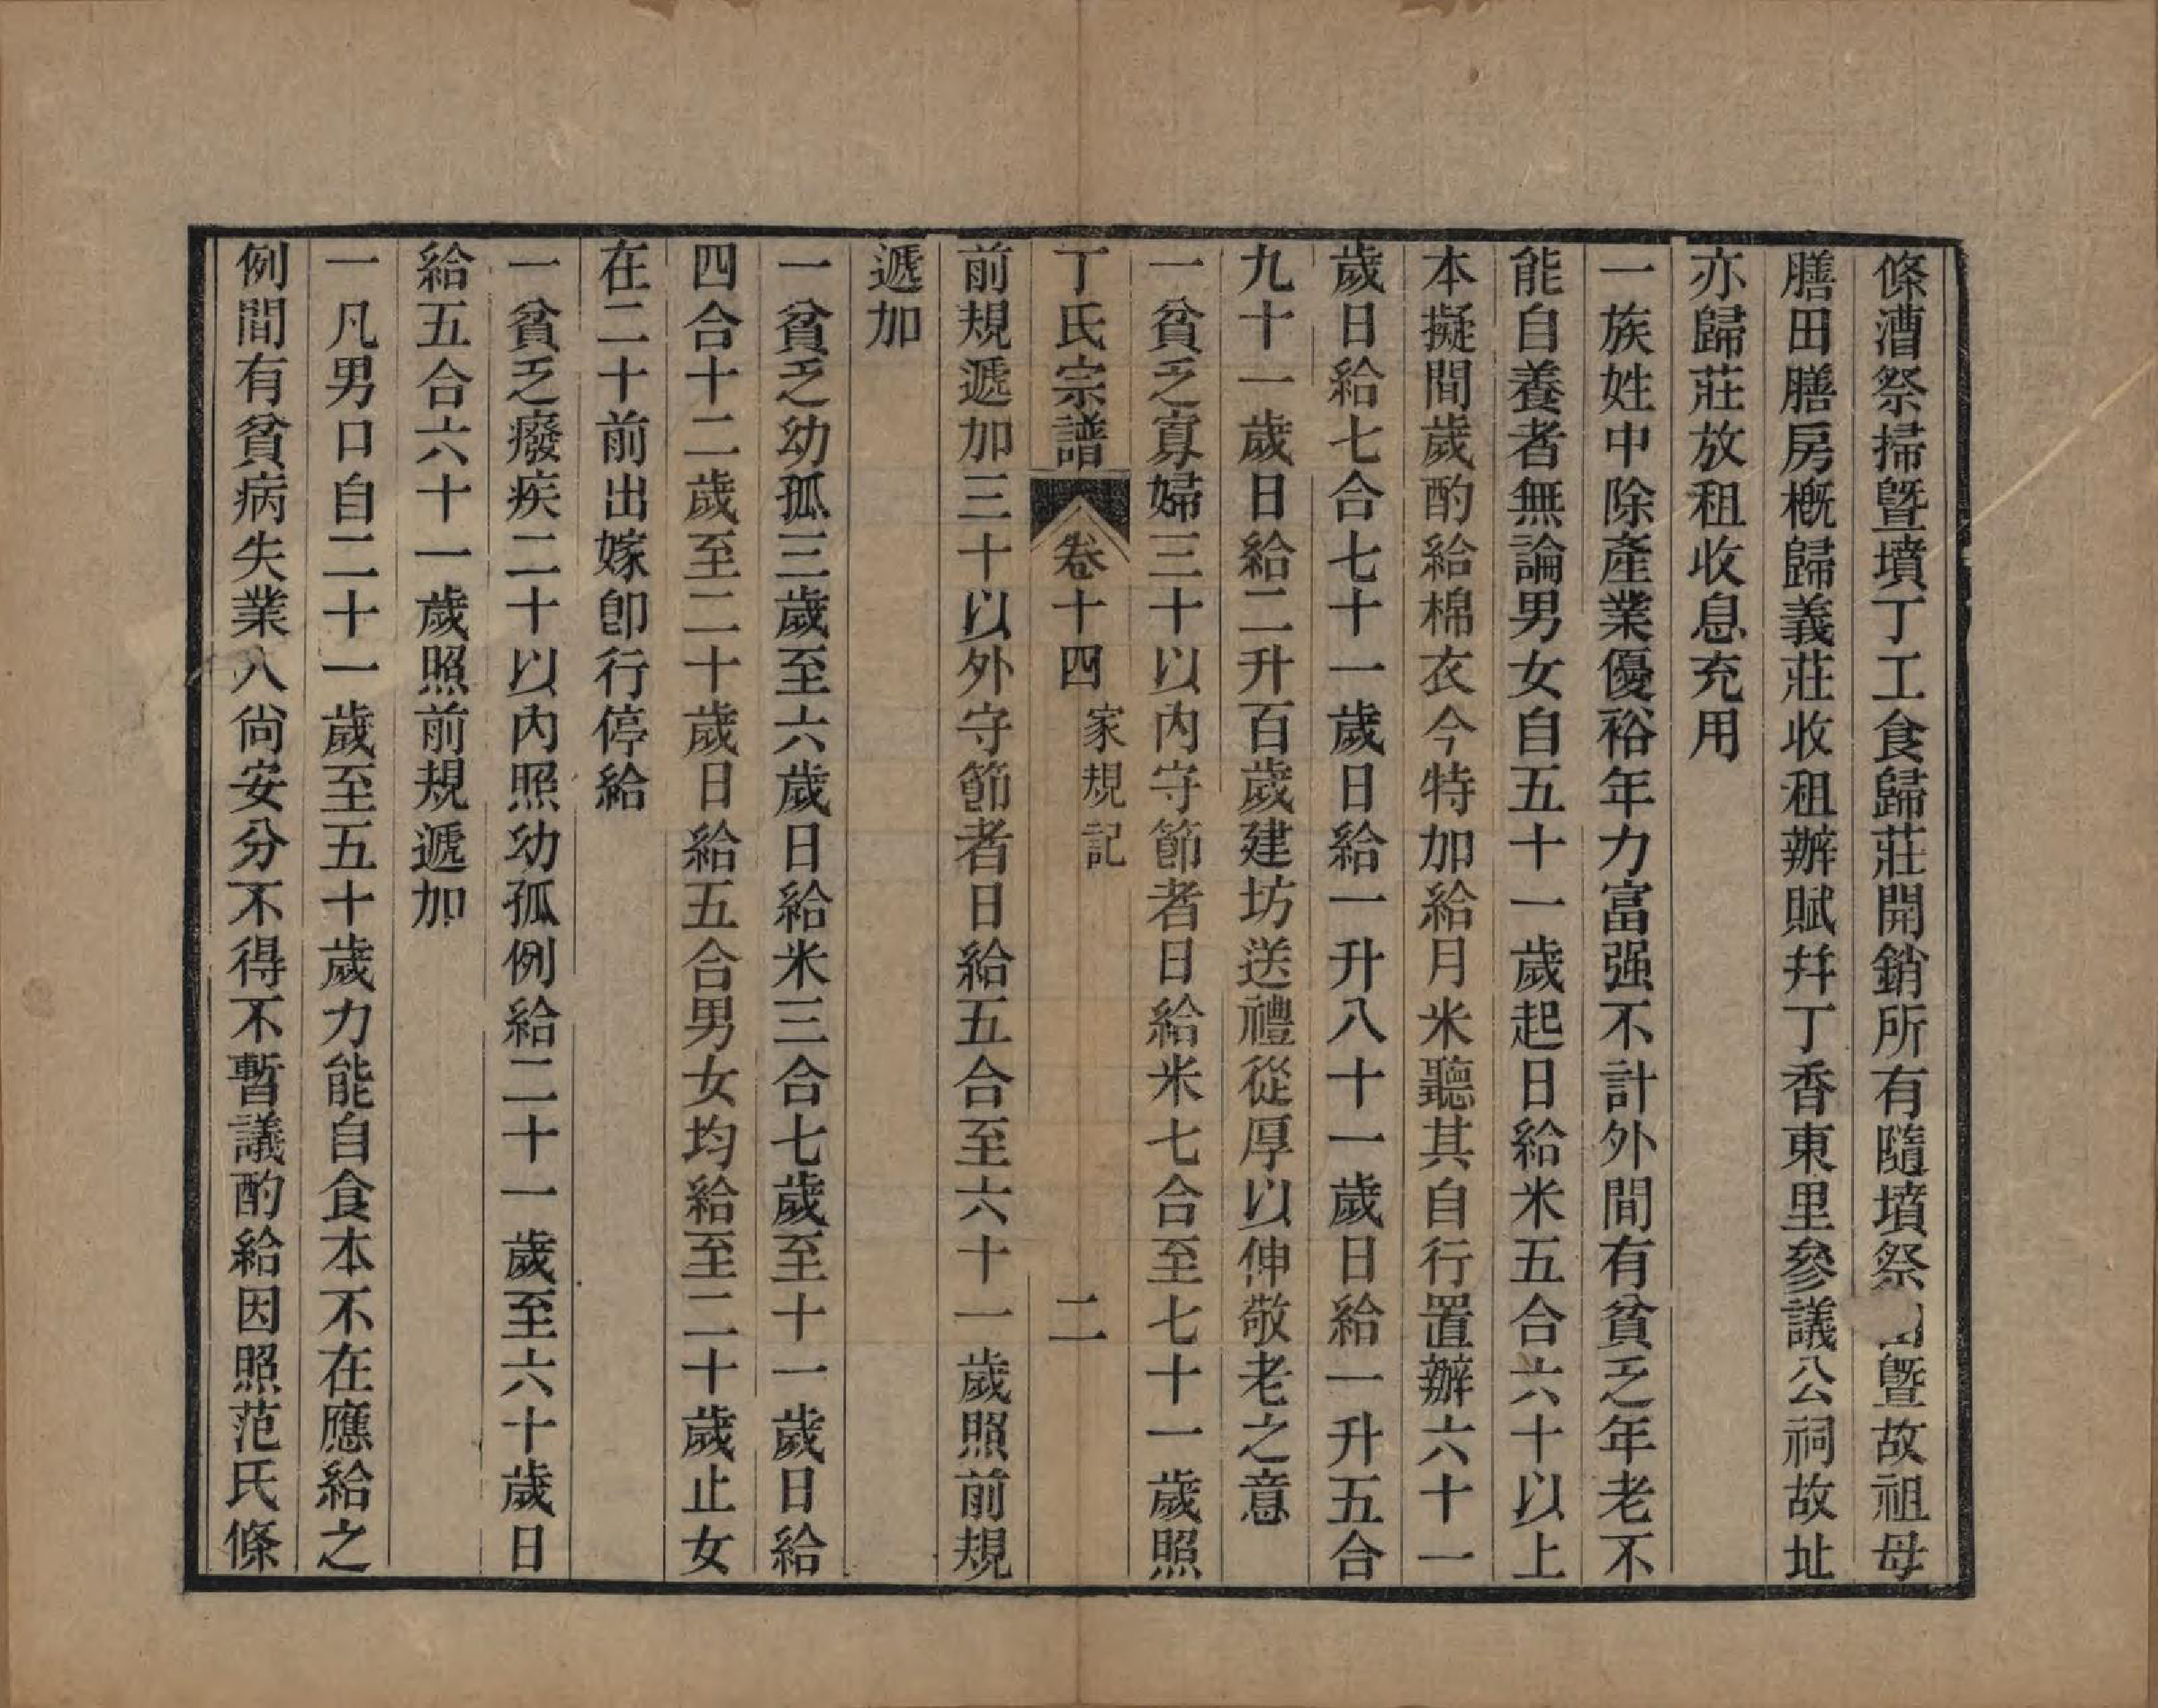 條漕祭掃暨墳丁工食歸莊開銷所有隨墳祭暨故祖母
膳田膳房槪歸義莊收租辦賦幷丁香東里參議公祠故址
亦歸莊放租收息充用
一族姓中除產業優裕年力富强不計外間有貧乏年老不
能自養者無論男女自五十一歲起日給米五合六十以上
本擬間歲酌給棉衣今特加給月米聽其自行置辦六十一
歲日給七合七十一歲日給一升八十一歲日給一升五合
九十一歲日給二升百歲建坊送禮從厚以伸敬老之意
一貧乏寡婦三十以內守節者日給米七合至七十一歲照
丁氏宗譜 卷十四 家規記 二
前規遞加三十以外守節者日給五合至六十一歲照前規
遞加
一貧乏幼孤三歲至六歲日給米三合七歲至十一歲日給
四合十二歲至二十歲日給五合男女均給至二十歲止女
在二十前出嫁卽行停給
一貧乏癈疾二十以內照幼孤例給二十一歲至六十歲日
給五合六十一歲照前規遞加
一凡男口自二十一歲至五十歲力能自食本不在應給之
例間有貧病失業入尙安分不得不暫議酌給因照范氏條